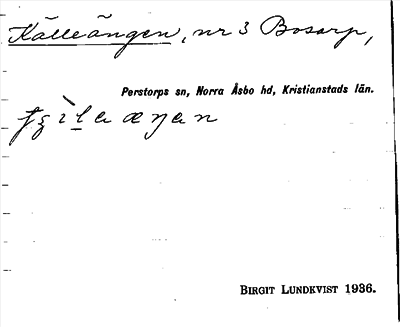 Källeängen, nr 3 Bosarp,
Perstorps sn, Norra Åsbo hd, Kristianstads län.
BIRGIT LUNDKVIST 1936.